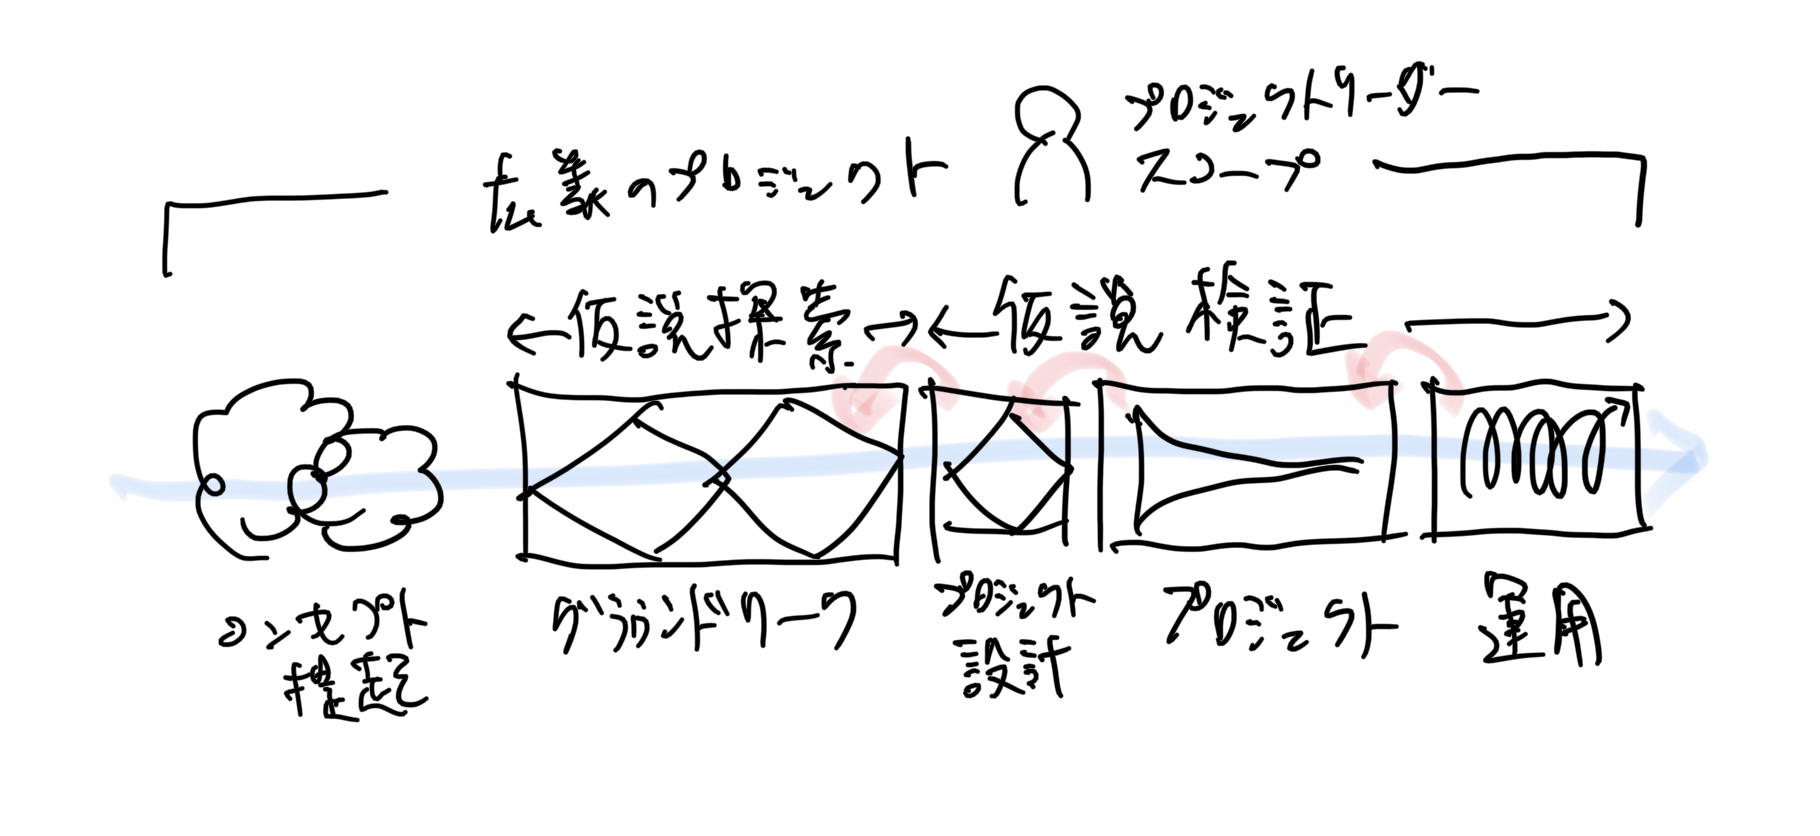 広義のプロジェクト
プロジェクトリーダー
スコープ
仮説探索
仮説検証
コンセプト
提起
グラウンドワーク
プロジェクト
設計
プロジェクト
運用